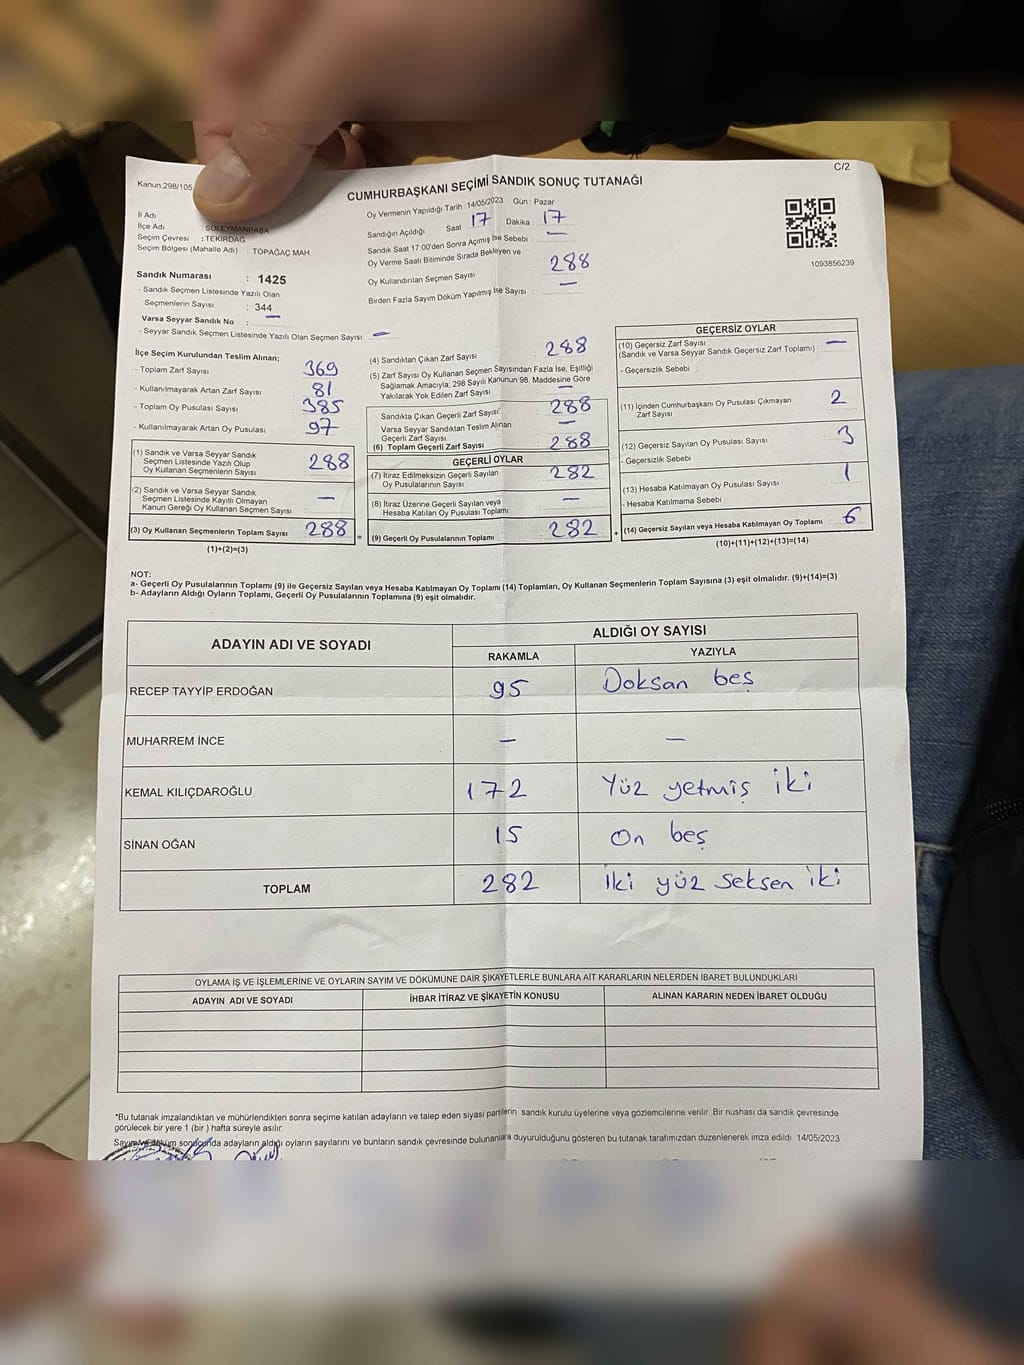 C/2
Kanun,298/105
CUMHURBAŞKANI SEÇİMİ SANDIK SONUÇ TUTANAĞI
İl Adı
İlçe Adı : SÜLEYMANPAŞA
Seçim Çevresi : TEKİRDAĞ
Seçim Bölgesi (Mahalle Adı) : TOPAĞAÇ MAH
Sandık Numarası : 1425
- Sandık Seçmen Listesinde Yazılı Olan
Seçmenlerin Sayısı : 344
Varsa Seyyar Sandık No : —
- Seyyar Sandık Seçmen Listesinde Yazılı Olan Seçmen Sayısı: —
Oy Vermenin Yapıldığı Tarih :14/05/2023 Gün : Pazar
Sandığın Açıldığı Saat : 17 Dakika : 17
Sandık Saat 17:00'den Sonra Açımış İse Sebebi : —
Oy Verme Saati Bitiminde Sırada Bekleyen ve
Oy Kullandırılan Seçmen Sayısı : 288
Birden Fazla Sayım Döküm Yapılmış İse Sayısı : —
1093856239
İlçe Seçim Kurulundan Teslim Alınan;
- Toplam Zarf Sayısı : 369
- Kullanılmayarak Artan Zarf Sayısı : 81
- Toplam Oy Pusulası Sayısı : 385
- Kullanılmayarak Artan Oy Pusulası : 97
(1) Sandık ve Varsa Seyyar Sandık
Seçmen Listesinde Yazılı Olup
Oy Kullanan Seçmenlerin Sayısı : 288
(2) Sandık ve Varsa Seyyar Sandık
Seçmen Listesinde Kayıtlı Olmayan
Kanun Gereği Oy Kullanan Seçmen Sayısı —
(3) Oy Kullanan Seçmenlerin Toplam Sayısı : 288 =
(1)+(2)=(3)
(4) Sandıktan Çıkan Zarf Sayısı : 288
(5) Zarf Sayısı Oy Kullanan Seçmen Sayısından Fazla İse, Eşitliği
Sağlamak Amacıyla; 298 Sayılı Kanunun 98. Maddesine Göre
Yakılarak Yok Edilen Zarf Sayısı : —
Sandıkta Çıkan Geçerli Zarf Sayısı : 288
Varsa Seyyar Sandıktan Teslim Alınan
Geçerli Zarf Sayısı : —
(6) Toplam Geçerli Zarf Sayısı : 288
GEÇERLİ OYLAR
(7) İtiraz Edilmeksizin Geçerli Sayılan
Oy Pusulalarının Sayısı : 282
(8) İtiraz Üzerine Geçerli Sayılan veya
Hesaba Katılan Oy Pusulası Toplamı : —
(9) Geçerli Oy Pusulalarının Toplamı : 282 +
GEÇERSİZ OYLAR
(10) Geçersiz Zarf Sayısı : —
(Sandık ve Varsa Seyyar Sandık Geçersiz Zarf Toplamı)
- Geçersizlik Sebebi :
(11) İçinden Cumhurbaşkanı Oy Pusulası Çıkmayan
Zarf Sayısı : 2
(12) Geçersiz Sayılan Oy Pusulası Sayısı : 3
- Geçersizlik Sebebi
(13) Hesaba Katılmayan Oy Pusulası Sayısı : 1
- Hesaba Katılmama Sebebi :
(14) Geçersiz Sayılan veya Hesaba Katılmayan Oy Toplamı : 6
(10)+(11)+(12)+(13)=(14)
NOT:
a- Geçerli Oy Pusulalarının Toplamı (9) ile Geçersiz Sayılan veya Hesaba Katılmayan Oy Toplamı (14) Toplamları, Oy Kullanan Seçmenlerin Toplam Sayısına (3) eşit olmalıdır. (9)+(14)=(3)
b- Adayların Aldığı Oyların Toplamı, Geçerli Oy Pusulalarının Toplamına (9) eşit olmalıdır.
ADAYIN ADI VE SOYADI ALDIĞI OY SAYISI
RAKAMLA YAZIYLA
RECEP TAYYİP ERDOĞAN 95 Doksan beş
MUHARREM İNCE — —
KEMAL KILIÇDAROĞLU 172 Yüz yetmiş iki
SİNAN OĞAN 15 On beş
TOPLAM 282 İki yüz seksen iki
OYLAMA İŞ VE İŞLEMLERİNE VE OYLARIN SAYIM VE DÖKÜMÜNE DAİR ŞİKAYETLERLE BUNLARA AİT KARARLARIN NELERDEN İBARET BULUNDUKLARI
ADAYIN ADI VE SOYADI İHBAR İTİRAZ VE ŞİKAYETİN KONUSU ALINAN KARARIN NEDEN İBARET OLDUĞU
*Bu tutanak imzalandıktan ve mühürlendikten sonra seçime katılan adayların ve talep eden siyasi partilerin sandık kurulu üyelerine veya gözlemcilerine verilir .Bir nüshası da sandık çevresinde
görülecek bir yere 1 (bir ) hafta süreyle asılır.
Sayım ve döküm sonucunda adayların aldığı oyların sayılarını ve bunların sandık çevresinde bulunanlara duyurulduğunu gösteren bu tutanak tarafımızdan düzenlenerek imza edildi. 14/05/2023